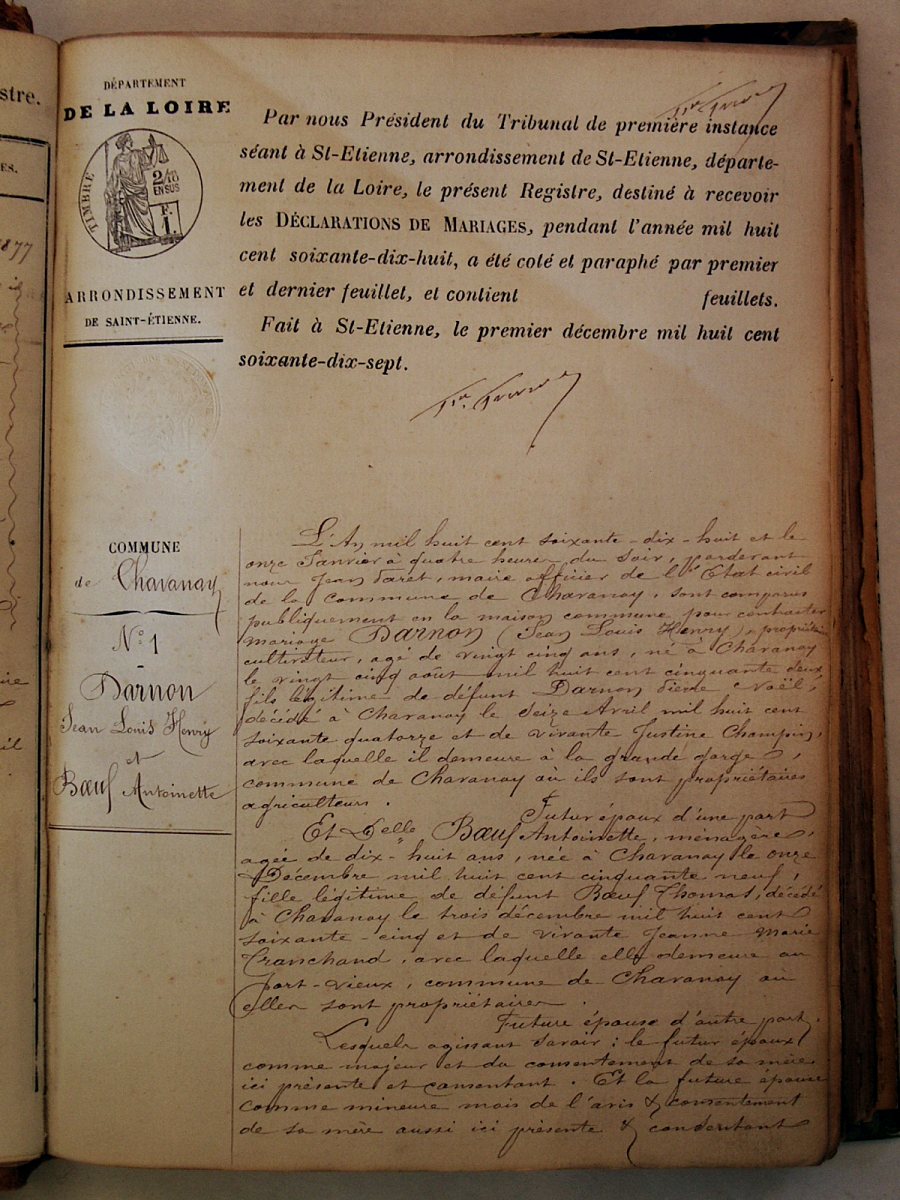 stre.
ES.
1877
DÉPARTEMENT
DE LA LOIRE
TIMBRE
2/10
EN SUS
F.
1.
ARRONDISSEMENT
DE SAINT-ÉTIENNE.
Par nous Président du Tribunal de première instance
séant à St-Etienne, arrondissement de St-Etienne, départe-
ment de la Loire, le présent Registre, destiné à recevoir
les DÉCLARATIONS DE MARIAGES, pendant l'année mil huit
cent soixante-dix-huit, a été coté et paraphé par premier
et dernier feuillet, et contient feuillets.
Fait à St-Etienne, le premier décembre mil huit cent
soixante-dix-sept.
COMMUNE
de Chavanay
N° 1
Darnon
Jean Louis Henry
et
Bœuf Antoinette
L'An mil huit cent soixante-dix-huit et le
onze Janvier à quatre heures du soir, pardevant
nous Jean Paret, maire officier de l'Etat civil
de la commune de Chavanay, sont comparus
publiquement en la maison commune pour contracter
mariage Darnon (Jean Louis Henry), propriétaire
cultivateur, agé de vingt cinq ans, né à Chavanay
le vingt cinq août mil huit cent cinquante deux
fils légitime de défunt Darnon Pierre Noël,
décédé à Chavanay le seize Avril mil huit cent
soixante quatorze et de vivante Justine Champin,
avec laquelle il demeure à la grande gorge,
commune de Chavanay où ils sont propriétaires
agriculteurs.
Futur époux d'une part
Et Delle Bœuf Antoinette, ménagère,
agée de dix-huit ans, née à Chavanay le onze
Décembre mil huit cent cinquante neuf,
fille légitime de défunt Bœuf Thomas, décédé
à Chavanay le trois décembre mil huit cent
soixante-cinq et de vivante Jeanne Marie
Tranchand, avec laquelle elle demeure au
port-vieux, commune de Chavanay où
elles sont propriétaires.
Future épouse d'autre part.
Lesquels agissant savoir : le futur époux
comme majeur et du consentement de sa mère
ici présente et consentant. Et la future épouse
comme mineure mais de l'avis & consentement
de sa mère aussi ici présente & consentant